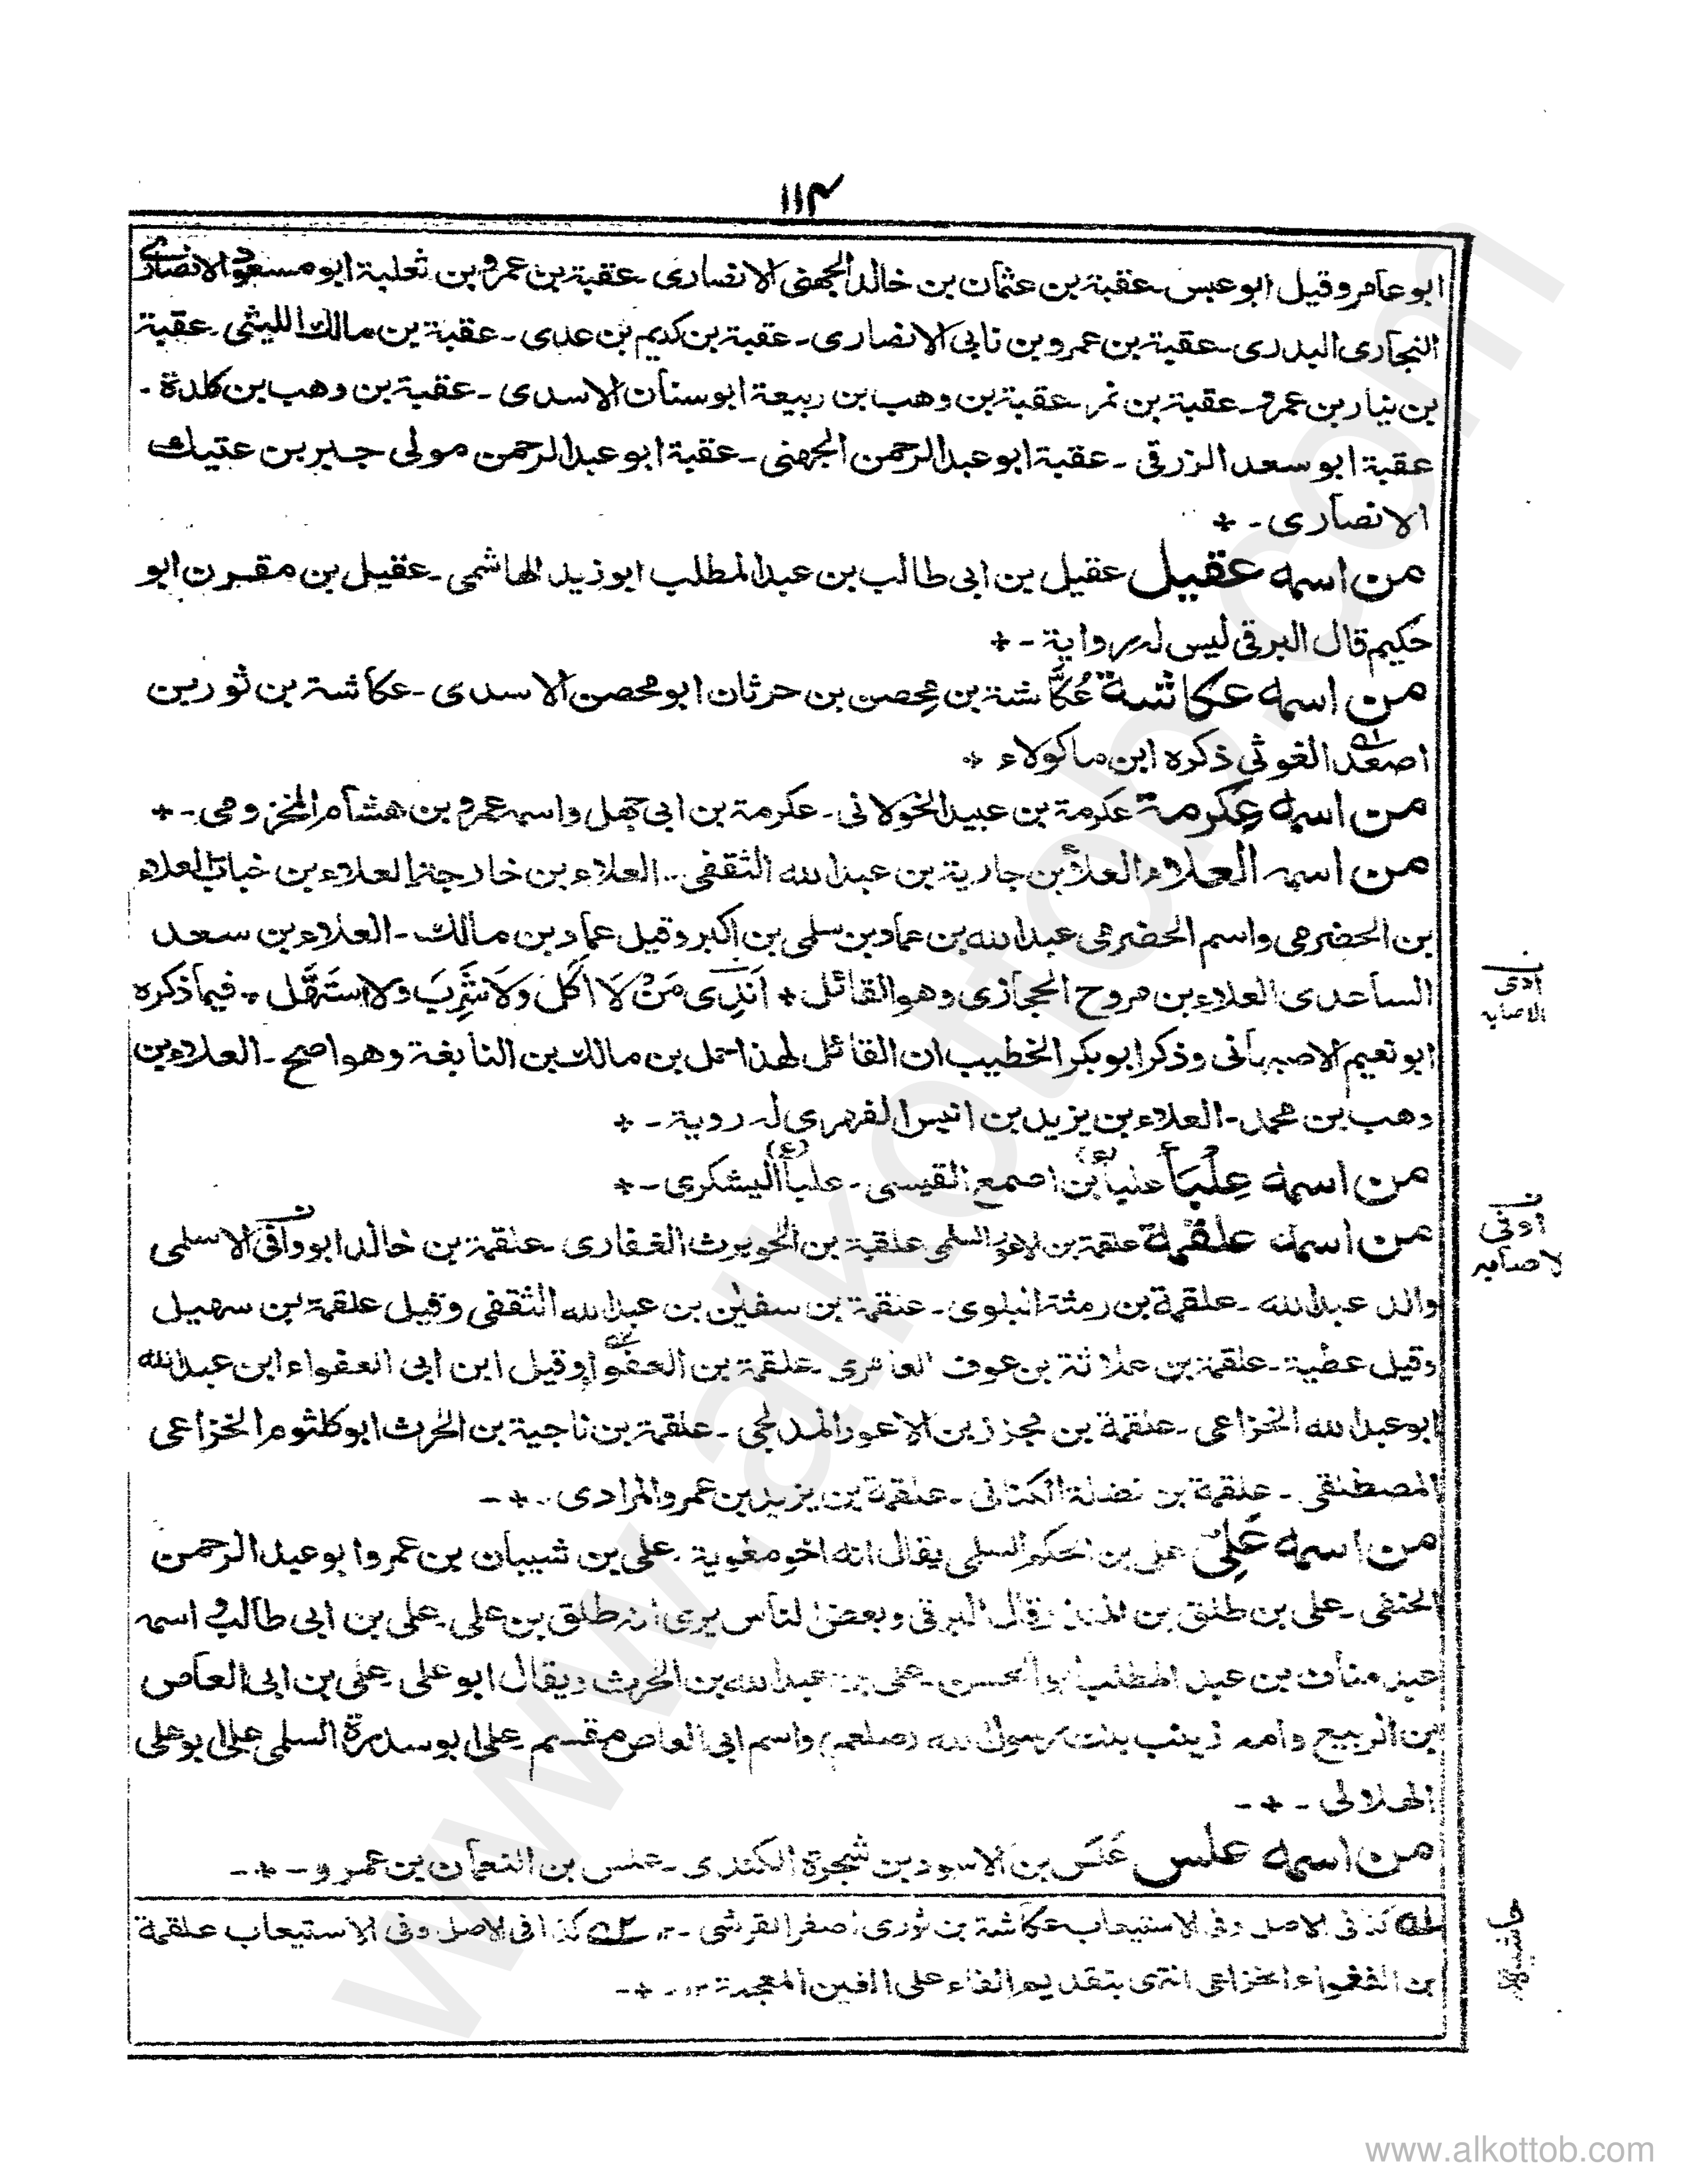 ١١٤
ابو عامر وقيل ابو عبس - عقبة بن عثمان بن خالد الجهنى الانصارى - عقبة بن عمرو بن ثعلبة ابو مسعود الانصارى
النجارى البدرى - عقبة بن عمرو بن نابى الانصارى - عقبة بن كديم بن عدى - عقبة بن مالك الليثى - عقبة
بن نيار بن عمرو - عقبة بن نمر - عقبة بن وهب بن ربيعة ابو سنان الاسدى - عقبة بن وهب بن كلدة -
عقبة ابو سعد الزرقى - عقبة ابو عبد الرحمن الجهنى - عقبة ابو عبد الرحمن مولى جبر بن عتيك
الانصارى - +
من اسمه عقيل عقيل بن ابى طالب بن عبد المطلب ابو زيد الهاشمى - عقيل بن مقرن ابو
حكيم قال البرقى ليس له رواية - +
من اسمه عكاشة عُكَّاشة بن مِحصن بن حرثان ابو محصن الاسدى - عكاشة بن ثور بن
اصعد الغوثى ذكره ابن ماكولاء +
من اسمه عِكرمة عكرمة بن عبيد الخولانى - عكرمة بن ابى جهل واسمه عمرو بن هشام المخزومى - +
من اسمه العلاء العلاء بن جارية بن عبد الله الثقفى - العلاء بن خارجة العلاء بن خباب العلاء
بن الحضرمى واسم الحضرمى عبد الله بن عماد بن سلمى بن اكبر وقيل عماد بن مالك - العلاء بن سعد
الساعدى العلاء بن مروح الحجازى وهو القائل + اَنَدِى مَنْ لَا اَكَلَ وَلَا شَرِبَ ولا استَهَّل + فيما ذكره
ابو نعيم الاصبهانى وذكر ابو بكر الخطيب ان القائل لهذا حمل بن مالك بن النابغة وهو اصح - العلاء بن
وهب بن محمد - العلاء بن يزيد بن انيس الفهرى له روية - +
من اسمه عِلْبَأ علبأ (ع) بن اصمع القيسى - علبأ (ع) اليشكرى - +
من اسمه علقمة علقمة بن الاعور السلمى علقبة بن الحويرث الغفارى - علقمة بن خالد ابو وافى الاسلمى
والد عبد الله - علقمة بن رمثة البلوى - علقمة بن سفين بن عبد الله الثقفى وقيل علقمة بن سهيل
وقيل عطية - علقمة بن علاثة بن عوف العامرى - علقمة بن العفواء وقيل ابن ابى العفواء ابن عبد الله
ابو عبد الله الخزاعى - علقمة بن مجزز بن الاعور المدلجى - علقمة بن ناجية بن الحرث ابو كلثوم الخزاعى
المصطلقى - علقمة بن نضلة الكنانى - علقمة بن يزيد بن عمرو المرادى - + -
من اسمه عَلِىّ على بن الحكم السلمى يقال انه اخو مغوية - على بن شيبان بن عمرو ابو عبد الرحمن
الحنفى - على بن طلق بن المنذر قال البرقى وبعض الناس يرى انه طلق بن على - على بن ابى طالب اسمه
عبد مناف بن عبد المطلب ابو الحسن - على بن عبد الله بن الحرث ويقال ابو على - على بن ابى العاص
بن الربيع وامه زينب بنت رسول الله (صلعم) واسم ابى العاص مقسم - على ابو سدرة السلمى على ابو على
الهلالى - + -
من اسمه علس عَلَس بن الاسود بن شجرة الكندى - علس بن النعمان بن عمرو - + -
له كذا فى الاصل وفى الاستيعاب عكاشة بن ثورى اصغر القرشى - ١٢ ٥٢ كذا فى الاصل وفى الاستيعاب علقمة
بن الفغواء الخزاعى انتهى بتقديم الفاء على الغين المعجمة ١٢ - + -
ن
ادى
الاصابه
ن
اوفى
لاصابه
www.alkottob.com
www.alkottob.com